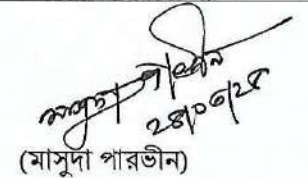 মাসুদা পারভীন
২৪/০৬/২৫
(মাসুদা পারভীন)